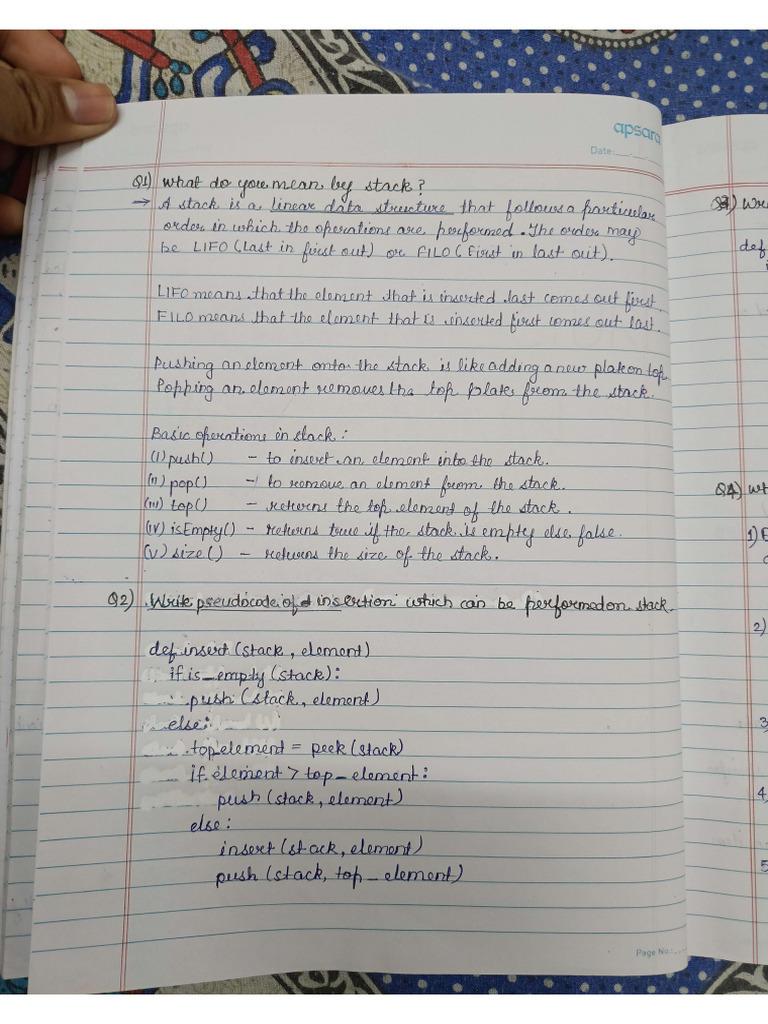 apsara
Date:
Q1) What do you mean by stack?
→ A stack is a linear data structure that follows a particular
order in which the operations are performed. The order may
be LIFO (Last in first out) or FILO (First in last out).
LIFO means that the element that is inserted last comes out first.
FILO means that the element that is inserted first comes out last.
Pushing an element onto the stack is like adding a new plate on top
Popping an element removes the top plate from the stack.
Basic operations in stack:
(i) push() - to insert an element into the stack.
(ii) pop() - to remove an element from the stack.
(iii) top() - returns the top element of the stack.
(iv) isEmpty() - returns true if the stack is empty else false.
(v) size() - returns the size of the stack.
Q2) Write pseudocode of insertion which can be performed on stack.
def insert (stack, element)
if is_empty (stack):
push (stack, element)
else:
top_element = peek (stack)
if element > top_element:
push (stack, element)
else:
insert (stack, element)
push (stack, top_element)
Page No.:
Q3) Wri
def
Q4) Wh
1)
2)
3
4
5